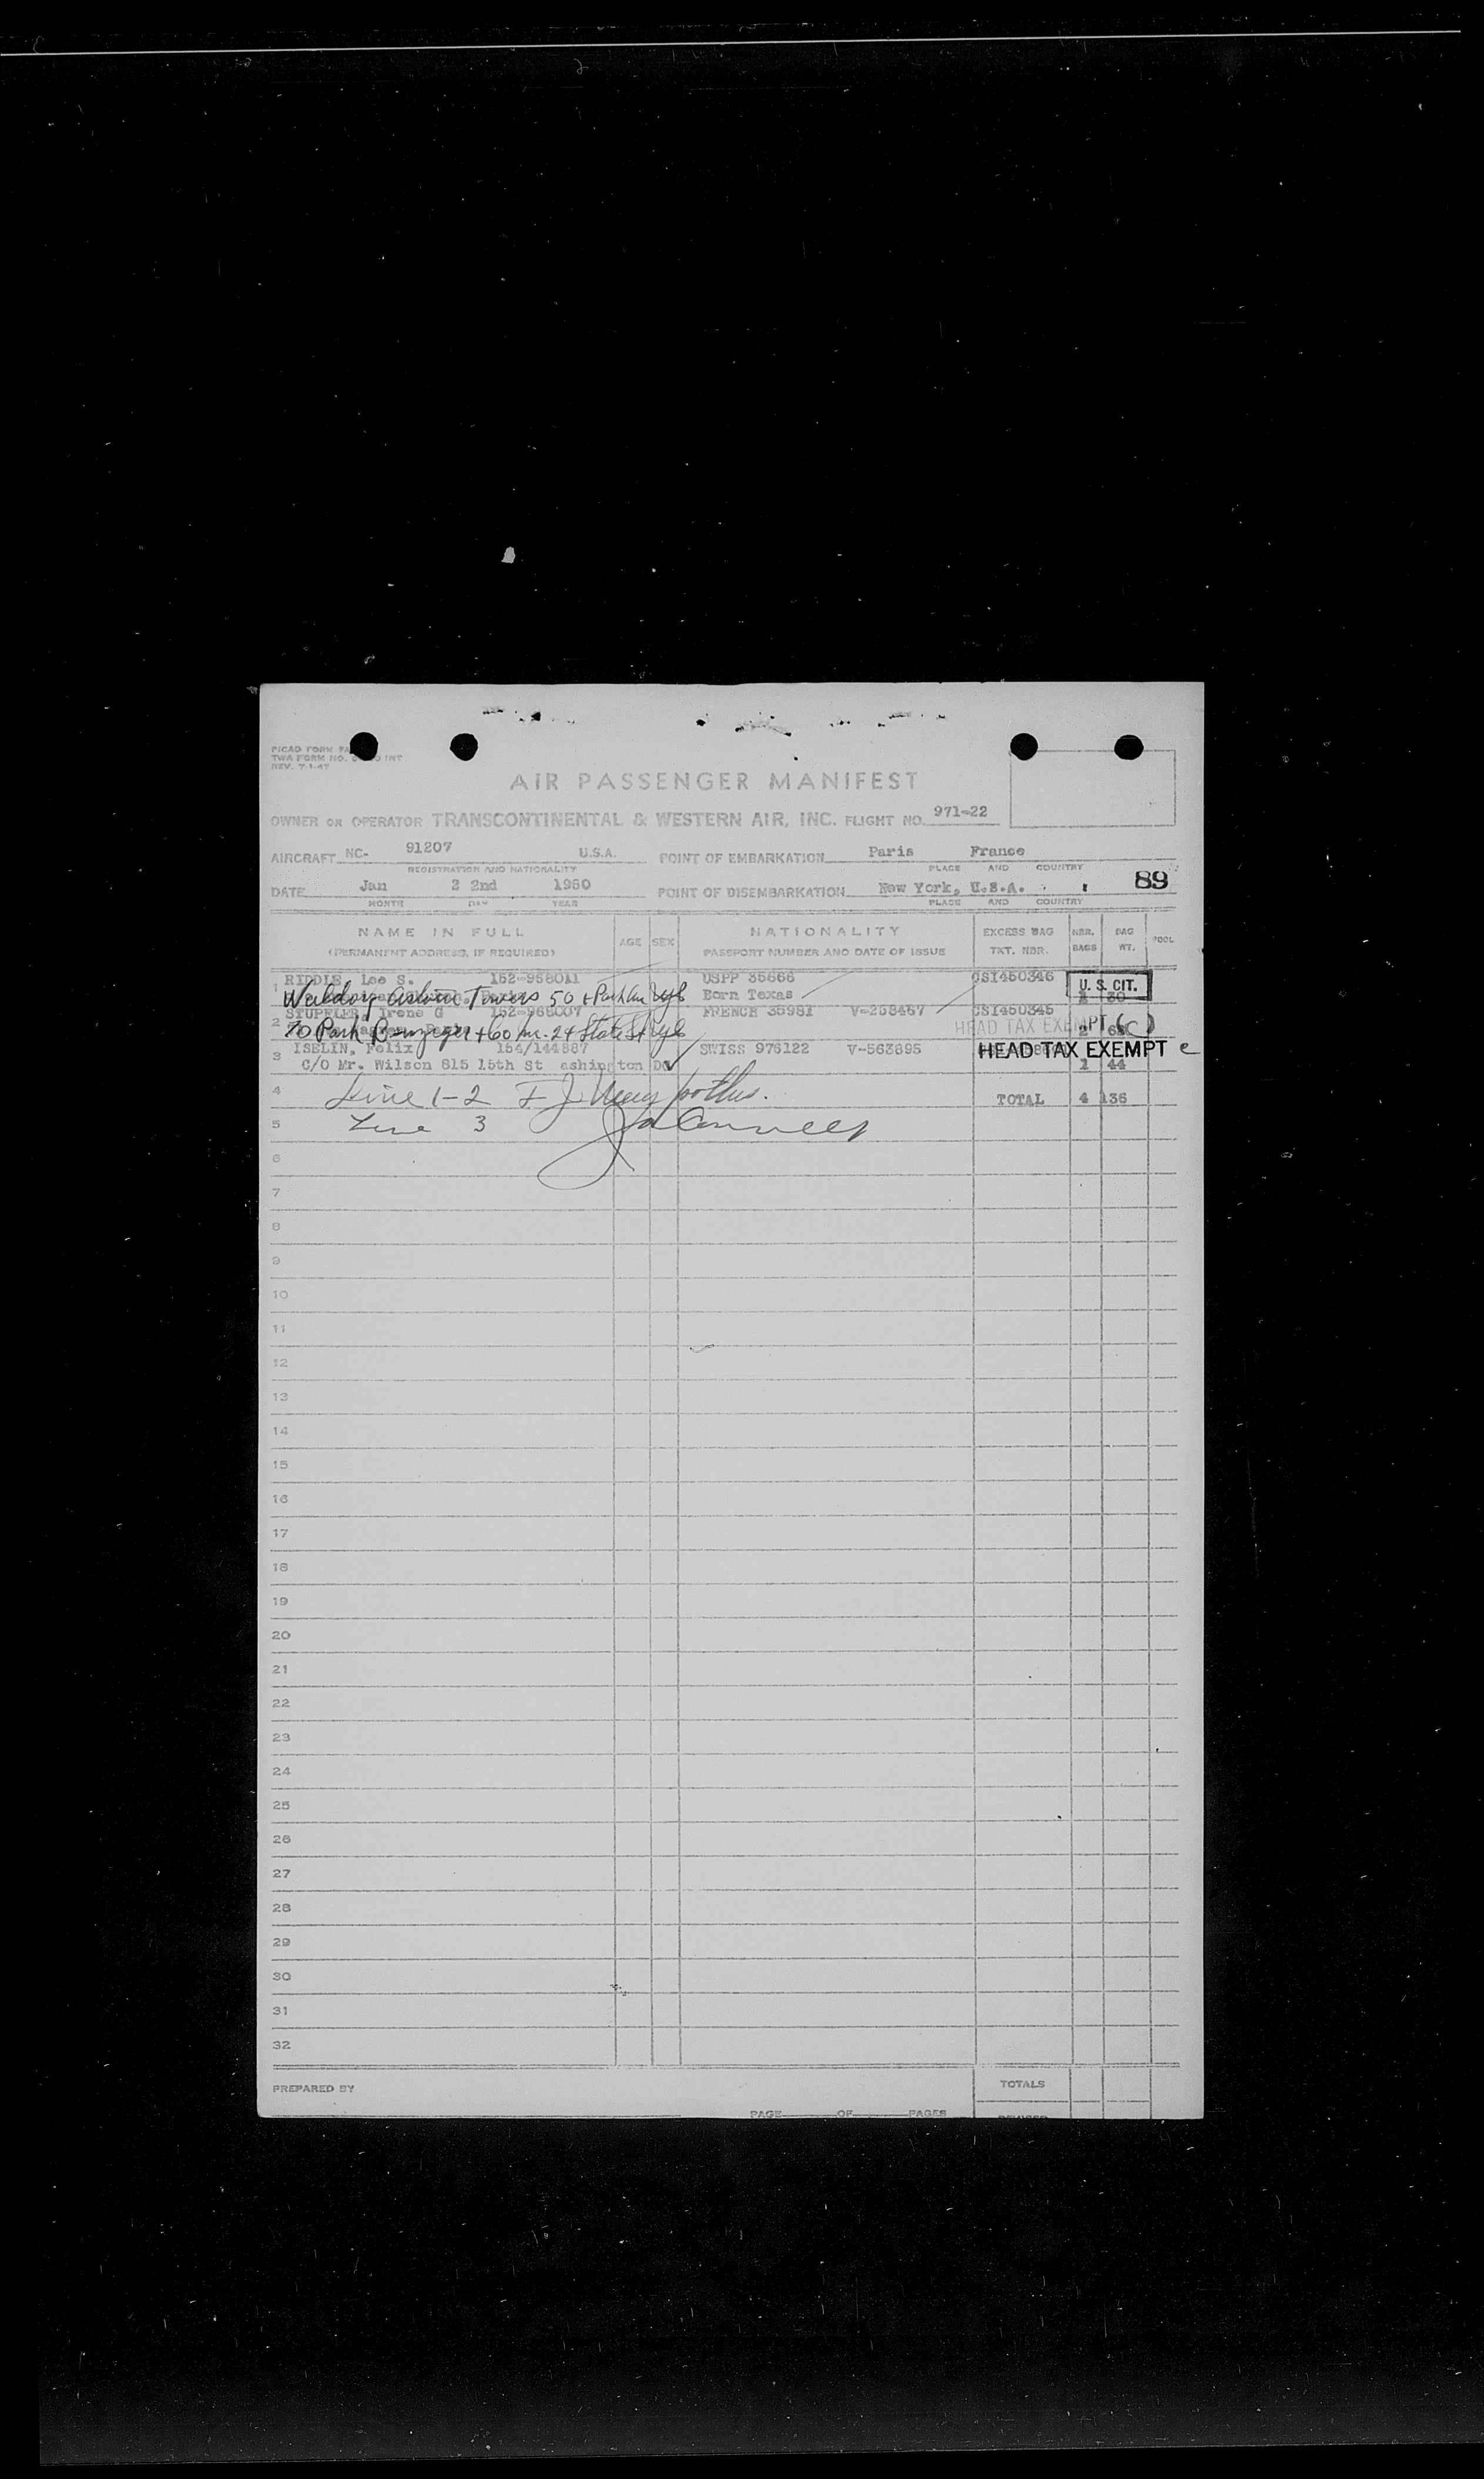 TWA FORM NO.
REV. 7-1-47
AIR PASSENGER MANIFEST
OWNER OR OPERATOR TRANSCONTINENTAL & WESTERN AIR, INC. FLIGHT NO. 971-22
AIRCRAFT NC- 91207 U.S.A. POINT OF EMBARKATION Paris France
REGISTRATION AND NATIONALITY PLACE AND COUNTRY
DATE Jan 2 2nd 1950 POINT OF DISEMBARKATION New York, U.S.A. 89
MONTH DAY YEAR PLACE AND COUNTRY
NAME IN FULL AGE SEX NATIONALITY EXCESS BAG NBR. BAG POOL
(PERMANENT ADDRESS, IF REQUIRED) PASSPORT NUMBER AND DATE OF ISSUE TKT. NBR. BAGS WT.
RIDDLE, Lee S. 152-958011 USPP 35666 CSI450346 U. S. CIT.
1 Towers 50 Born Texas 1 30
STUPFLER, Irene G FRENCH 35981 V-258467 CSI450345
2 70 Park 24 State St HEAD TAX EXEMPT (C) 2
3 ISELIN, Felix 154/144887 SWISS 976122 V-563895 HEAD TAX EXEMPT c
C/O Mr. Wilson 815 15th St ashington DC 1 44
4 Line 1-2 TOTAL 4 136
5 Line 3
6
7
8
9
10
11
12
13
14
15
16
17
18
19
20
21
22
23
24
25
26
27
28
29
30
31
32
PREPARED BY TOTALS
PAGE OF PAGES